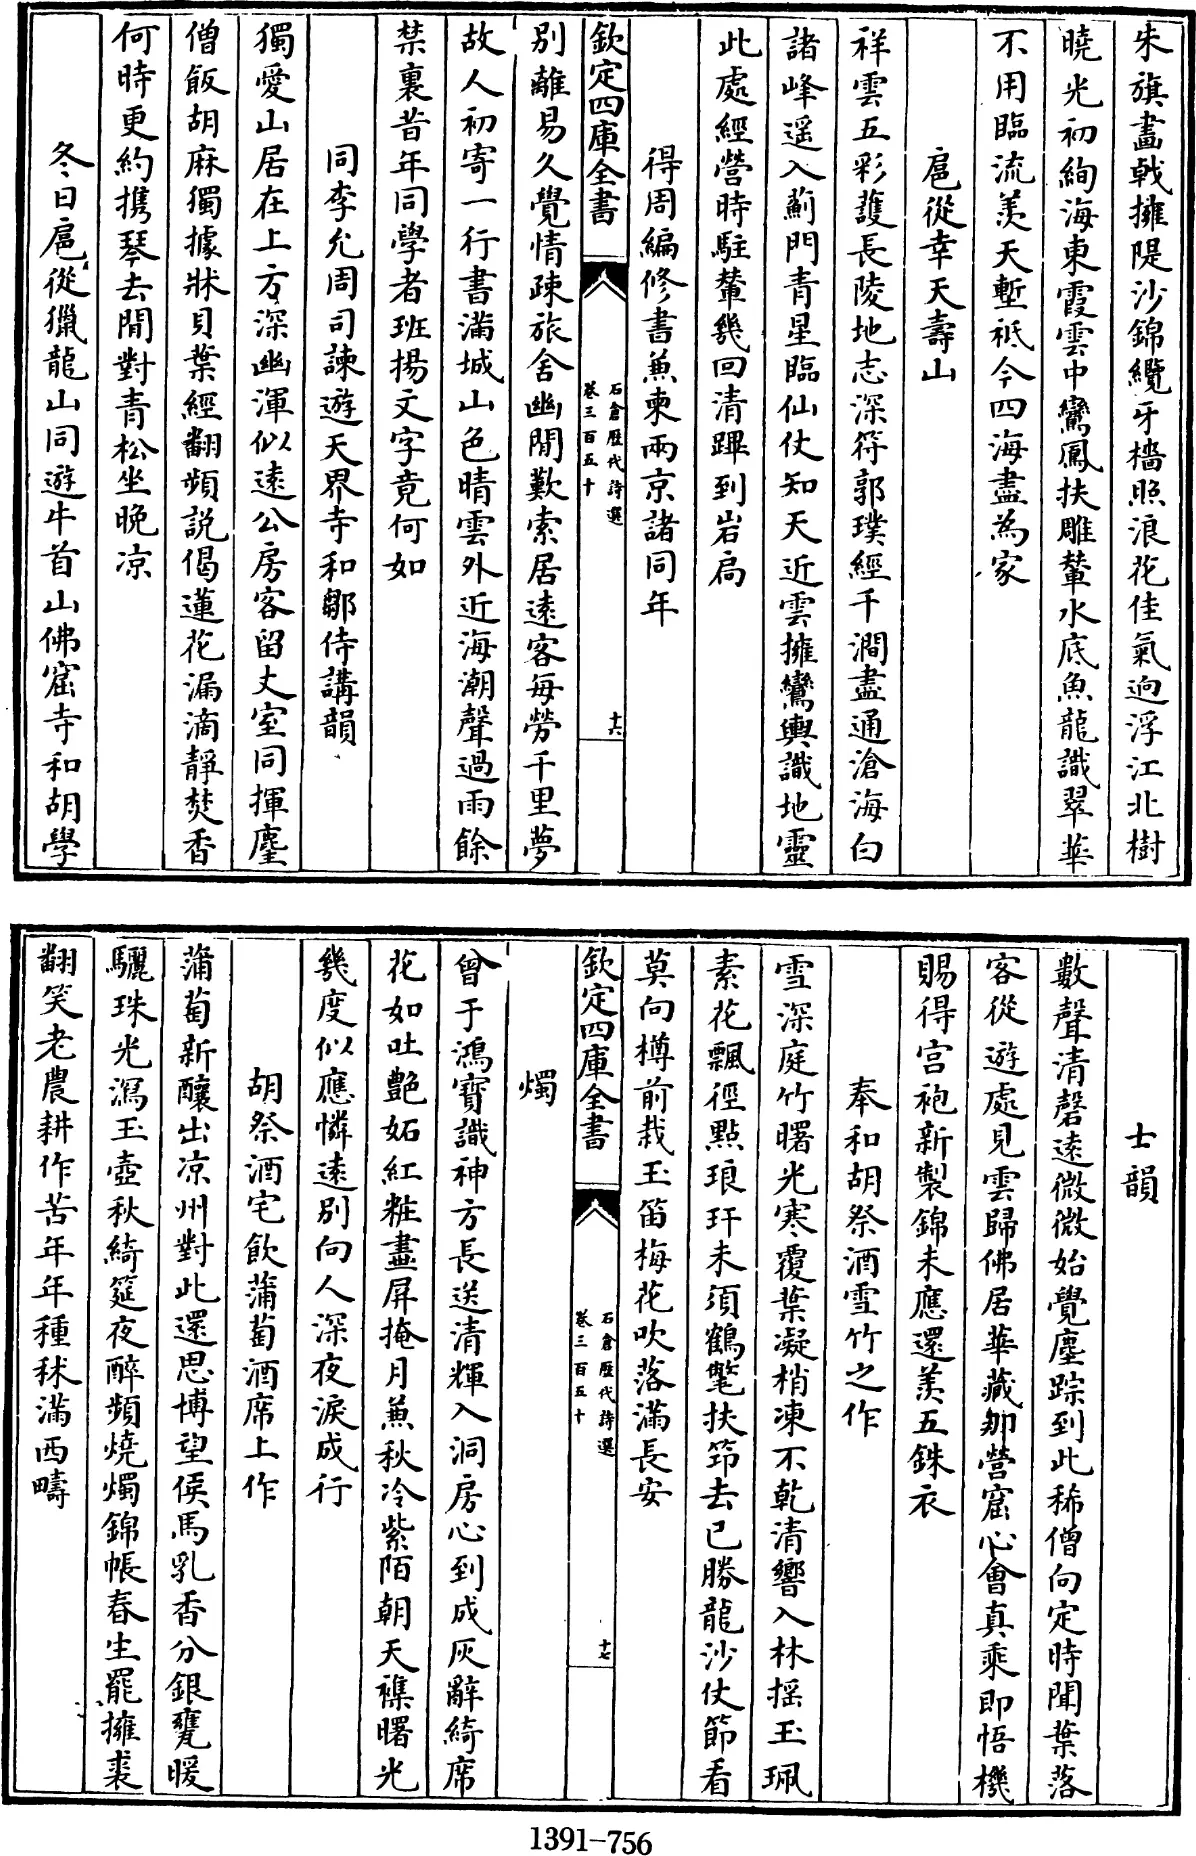 朱旗畫戟擁隄沙錦纜牙檣照浪花佳氣迥浮江北樹
曉光初絢海東霞雲中鸞鳳扶雕輦水底魚龍識翠華
不用臨流羨天塹祇今四海盡為家
扈從幸天壽山
祥雲五彩護長陵地志深符郭璞經千澗盡通滄海白
諸峰遥入薊門青星臨仙仗知天近雲擁鸞輿識地靈
此處經營時駐輦幾回清蹕到岩扃
得周編修書兼柬兩京諸同年
欽定四庫全書
石倉歷代詩選
卷三百五十
十六
別離易久覺情疎旅舍幽閒歎索居逺客每勞千里夢
故人初寄一行書滿城山色晴雲外近海潮聲過雨餘
禁裏昔年同學者班揚文字竟何如
同李允周司諫遊天界寺和鄒侍講韻
獨愛山居在上方深幽渾似逺公房客留丈室同揮麈
僧飯胡麻獨據牀貝葉經翻頻説偈蓮花漏滴靜焚香
何時更約擕琴去閒對青松坐晚凉
冬日扈從獵龍山同遊牛首山佛窟寺和胡學
士韻
數聲清磬逺微微始覺塵踪到此稀僧向定時聞葉落
客從遊處見雲歸佛居華藏初營窟心會真乘即悟機
賜得宫袍新製錦未應還羨五銖衣
奉和胡祭酒雪竹之作
雪深庭竹曙光寒覆葉凝梢凍不乾清響入林揺玉珮
素花飄徑點琅玕未須鶴氅扶筇去已勝龍沙仗節看
莫向樽前裁玉笛梅花吹落滿長安
欽定四庫全書
石倉歷代詩選
卷三百五十
十七
燭
曾于鴻寶識神方長送清輝入洞房心到成灰辭綺席
花如吐艶妬紅粧畫屏掩月兼秋冷紫陌朝天襍曙光
幾度似應憐逺別向人深夜淚成行
胡祭酒宅飲蒲萄酒席上作
蒲萄新釀出凉州對此還思博望侯馬乳香分銀甕暖
驪珠光瀉玉壺秋綺筵夜醉頻燒燭錦帳春生罷擁裘
翻笑老農耕作苦年年種秫滿西疇
1391-756